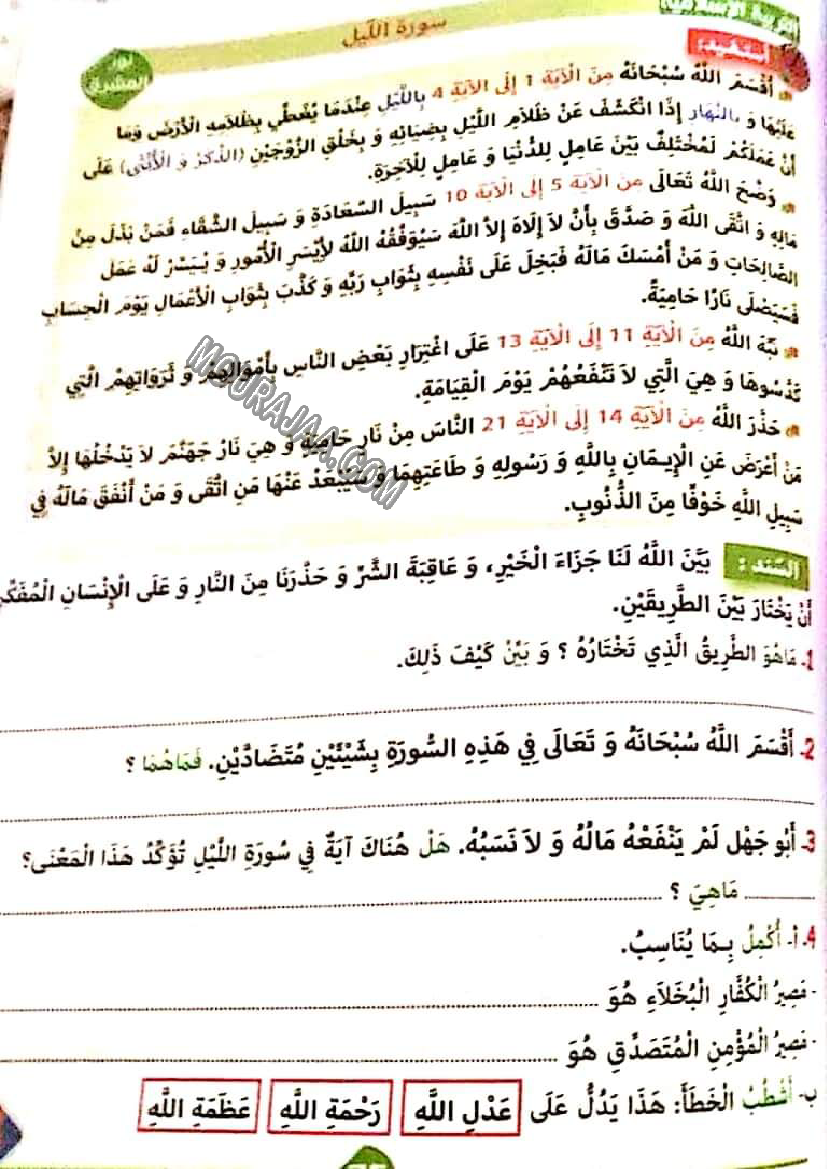 التربية الإسلامية
سورة الليل
نور المشرق
أستفيد:
أَقْسَمَ اللَّهُ سُبْحَانَهُ مِنَ الْآيَةِ 1 إِلَى الآيَةِ 4 بِاللَّيْلِ عِنْدَمَا يُغَطِّي بِظَلَامِهِ الْأَرْضَ وَمَا
عَلَيْهَا وَ بِالنَّهَارِ إِذَا انْكَشَفَ عَنْ ظَلَامِ اللَّيْلِ بِضِيَائِهِ وَ بِخَلْقِ الزَّوْجَيْنِ (الذَّكَرُ وَ الْأُنْثَى) عَلَى
أَنَّ عَمَلَكُمْ لَمُخْتَلِفٌ بَيْنَ عَامِلٍ لِلدُّنْيَا وَ عَامِلٍ لِلْآخِرَةِ.
وَضَّحَ اللَّهُ تَعَالَى مِنَ الْآيَةِ 5 إِلَى الْآيَةِ 10 سَبِيلَ السَّعَادَةِ وَ سَبِيلَ الشَّقَاءِ فَمَنْ بَذَلَ مِنْ
مَالِهِ وَ اتَّقَى اللَّهَ وَ صَدَّقَ بِأَنْ لاَ إِلَاهَ إِلاَّ اللَّهَ سَيُوَفِّقُهُ اللَّهُ لِأَيْسَرِ الْأُمُورِ وَ يُيَسِّرُ لَهُ عَمَلَ
الصَّالِحَاتِ وَ مَنْ أَمْسَكَ مَالَهُ فَبَخِلَ عَلَى نَفْسِهِ بِثَوَابِ رَبِّهِ وَ كَذَّبَ بِثَوَابِ الْأَعْمَالِ يَوْمَ الْحِسَابِ
فَسَيَصْلَى نَارًا حَامِيَةً.
نَبَّهَ اللَّهُ مِنَ الْآيَةِ 11 إِلَى الْآيَةِ 13 عَلَى اغْتِرَارِ بَعْضِ النَّاسِ بِأَمْوَالِهِمْ وَ ثَرَوَاتِهِمْ الَّتِي
كَدَّسُوهَا وَ هِيَ الَّتِي لاَ تَنْفَعُهُمْ يَوْمَ الْقِيَامَةِ.
حَذَّرَ اللَّهُ مِنَ الْآيَةِ 14 إِلَى الْآيَةِ 21 النَّاسَ مِنْ نَارٍ حَامِيَةٍ وَ هِيَ نَارُ جَهَنَّمَ لاَ يَدْخُلُهَا إِلاَّ
مَنْ أَعْرَضَ عَنِ الْإِيمَانِ بِاللَّهِ وَ رَسُولِهِ وَ طَاعَتِهِمَا وَ سَيُبْعَدُ عَنْهَا مَنِ اتَّقَى وَ مَنْ أَنْفَقَ مَالَهُ فِي
سَبِيلِ اللَّهِ خَوْفًا مِنَ الذُّنُوبِ.
MOURAJAA.COM
السّند : بَيَّنَ اللَّهُ لَنَا جَزَاءَ الْخَيْرِ، وَ عَاقِبَةَ الشَّرِّ وَ حَذَّرَنَا مِنَ النَّارِ وَ عَلَى الْإِنْسَانِ الْمُفَكِّرِ
أَنْ يَخْتَارَ بَيْنَ الطَّرِيقَيْنِ.
1. مَاهُوَ الطَّرِيقُ الَّذِي تَخْتَارُهُ ؟ وَ بَيِّنْ كَيْفَ ذَلِكَ.
2. أَقْسَمَ اللَّهُ سُبْحَانَهُ وَ تَعَالَى فِي هَذِهِ السُّورَةِ بِشَيْئَيْنِ مُتَضَادَّيْنِ. فَمَاهُمَا ؟
3. أَبُو جَهْلٍ لَمْ يَنْفَعْهُ مَالُهُ وَ لاَ نَسَبُهُ. هَلْ هُنَاكَ آيَةٌ فِي سُورَةِ اللَّيْلِ تُؤَكِّدُ هَذَا الْمَعْنَى؟
مَاهِيَ ؟
4. أ- أُكْمِلُ بِمَا يُنَاسِبُ.
- مَصِيرُ الْكُفَّارِ الْبُخَلَاءِ هُوَ
- مَصِيرُ الْمُؤْمِنِ الْمُتَصَدِّقِ هُوَ
ب- أَشْطُبُ الْخَطَأَ: هَذَا يَدُلُّ عَلَى عَدْلِ اللَّهِ رَحْمَةِ اللَّهِ عَظَمَةِ اللَّهِ